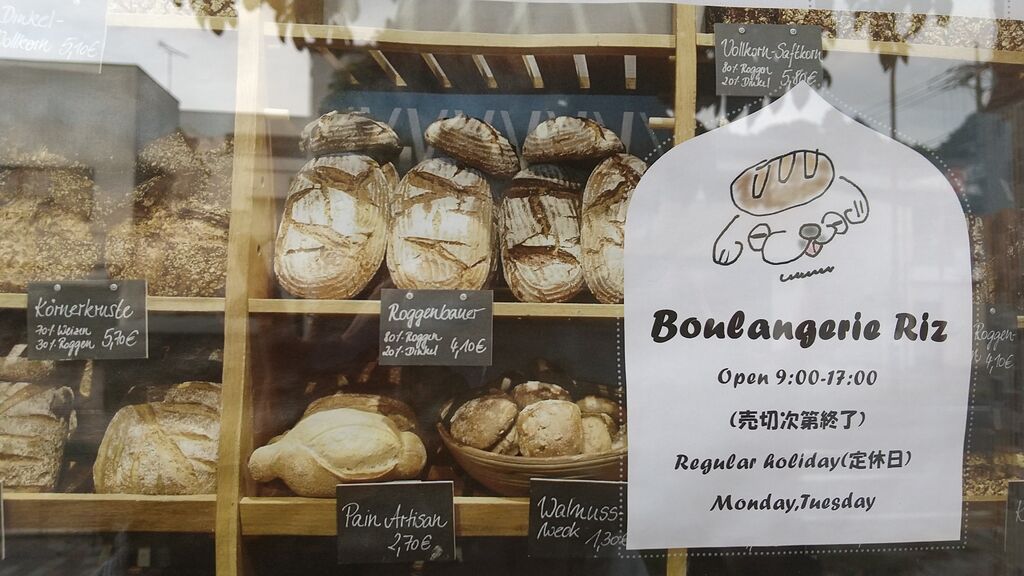 Dinkel-
Vollkorn 5,10€
Vollkorn-Saftkorn
80% Roggen
20% Dinkel 5,80€
Körnerkruste
70% Weizen
30% Roggen 5,70€
Roggenbauer
80% Roggen
20% Dinkel 4,10€
Pain Artisan
2,70€
Walnuss-
weck 1,30€
Boulangerie Riz
Open 9:00-17:00
(売切次第終了)
Regular holiday(定休日)
Monday,Tuesday
Roggen-
4,10€